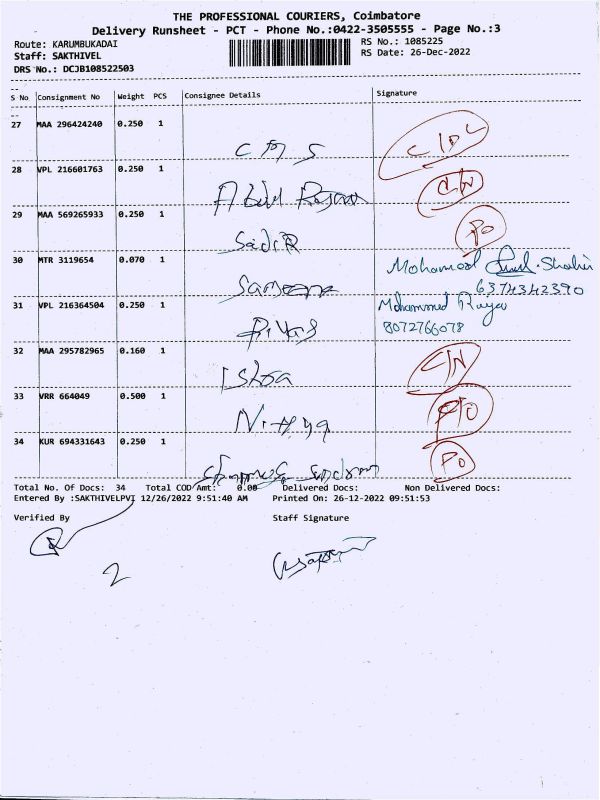 THE PROFESSIONAL COURIERS, Coimbatore
Delivery Runsheet - PCT - Phone No.:0422-3505555 - Page No.:3
Route: KARUMBUKADAI RS No.: 1085225
Staff: SAKTHIVEL RS Date: 26-Dec-2022
DRS No.: DCJB108522503
S No Consignment No Weight PCS Consignee Details Signature
27 MAA 296424240 0.250 1
C M S
28 VPL 216601763 0.250 1 C/N
Abdul
29 MAA 569265933 0.250 1 PO
Sadiq
30 MTR 3119654 0.070 1 Mohamood
Sameena 6374342390
31 VPL 216364504 0.250 1 Mohammed
Riyas 8072766078
32 MAA 295782965 0.160 1 C/N
33 VRR 664049 0.500 1 P/O
Nithya
34 KUR 694331643 0.250 1 PO
Total No. Of Docs: 34 Total COD Amt: 0.00 Delivered Docs: Non Delivered Docs:
Entered By :SAKTHIVELPVI 12/26/2022 9:51:40 AM Printed On: 26-12-2022 09:51:53
Verified By Staff Signature
2